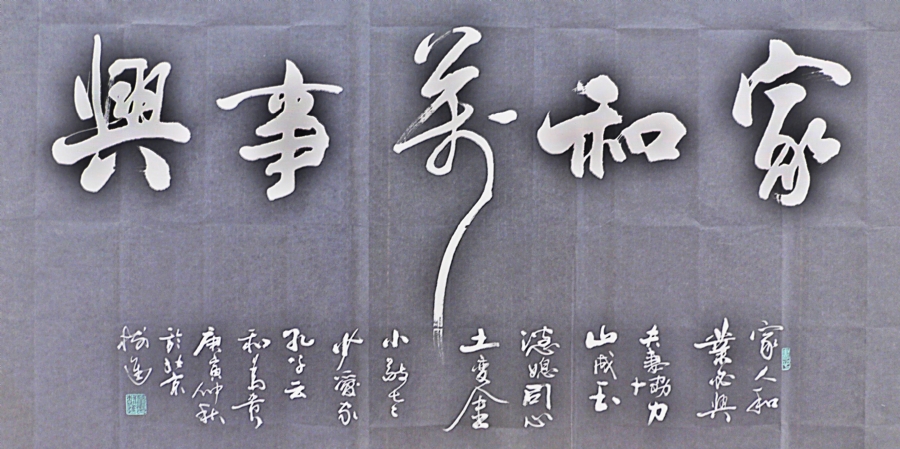 家和萬事興
家人和
業必興
夫妻協力
山成玉
婆媳同心
土變金
小敬老
少愛家
孔子云
和為貴
庚寅仲秋
於北京